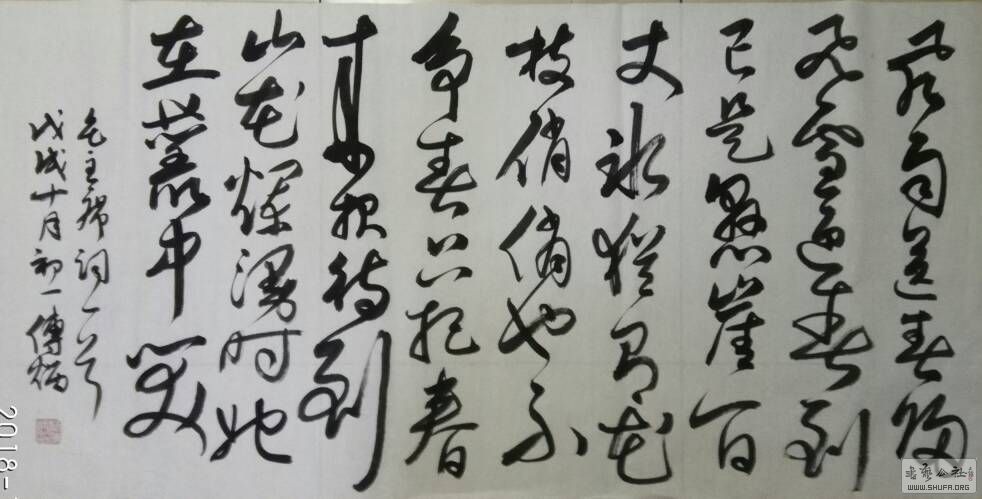 风雨送春归
飞雪迎春到
已是懸崖百
丈冰猶有花
枝俏俏也不
争春只把春
来报待到
山花爛漫时她
在叢中笑
毛主席词一首
戊戌十月初一傅炳
2018-
书艺公社
WWW.SHUFA.ORG